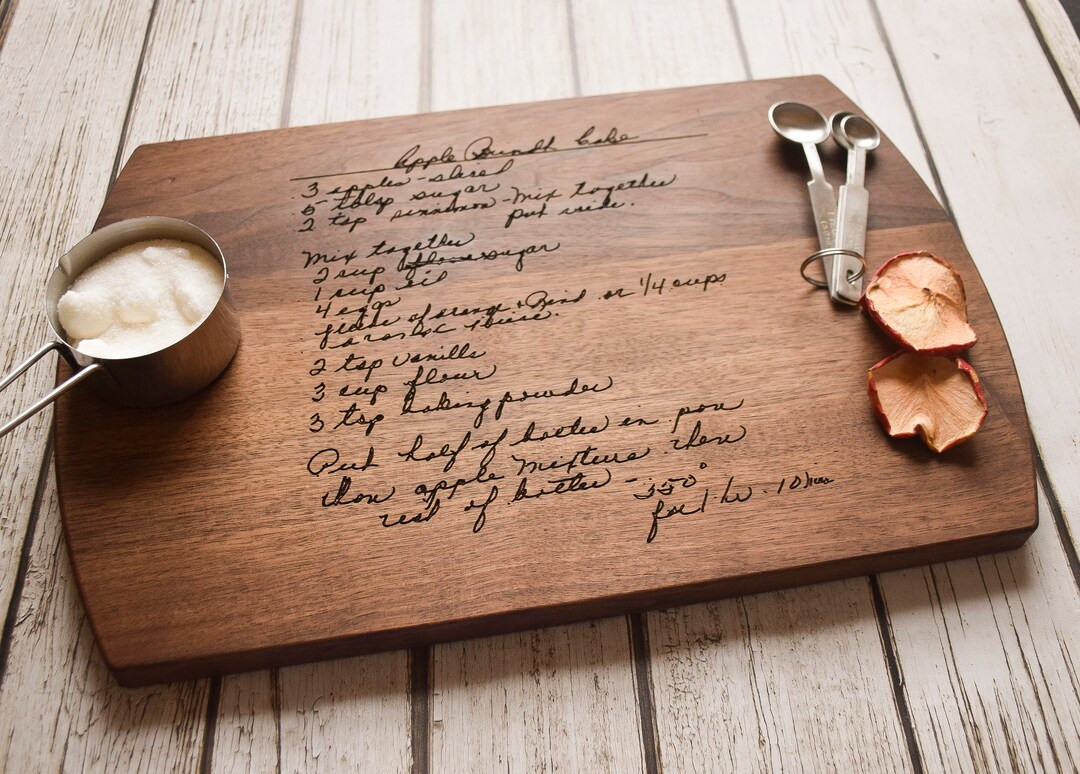 Apple Bundt Cake
3 apples - sliced
5 tblsp sugar
2 tsp cinnamon - mix together
put aside.
Mix together
2 cup flour sugar
1 cup oil
4 eggs
of orange + Rind or 1/4 cups
2 tsp vanilla
3 cup flour
3 tsp baking powder
Put half of batter in pan
then apple mixture then
rest of batter -
350°
for 1 hr. 10